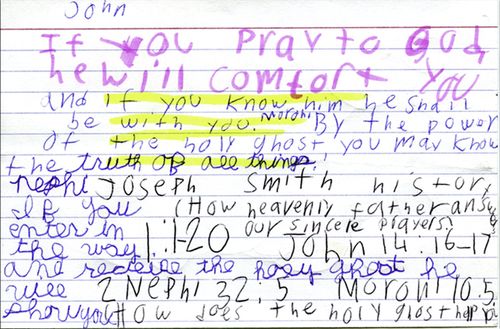 John
If you pray to God
he will comfort you
and if you know him he shall
be with you. Moroni By the power
of the holy ghost you may know
the truth of all things.
nephi Joseph Smith history
If you (How heavenly father answers
enter in 1:1-20 our sincere prayers)
the way John 14:16-17
and receive the holy ghost he
will 2 Nephi 32:5 Moroni 10:5
show you (How does the holy ghost help